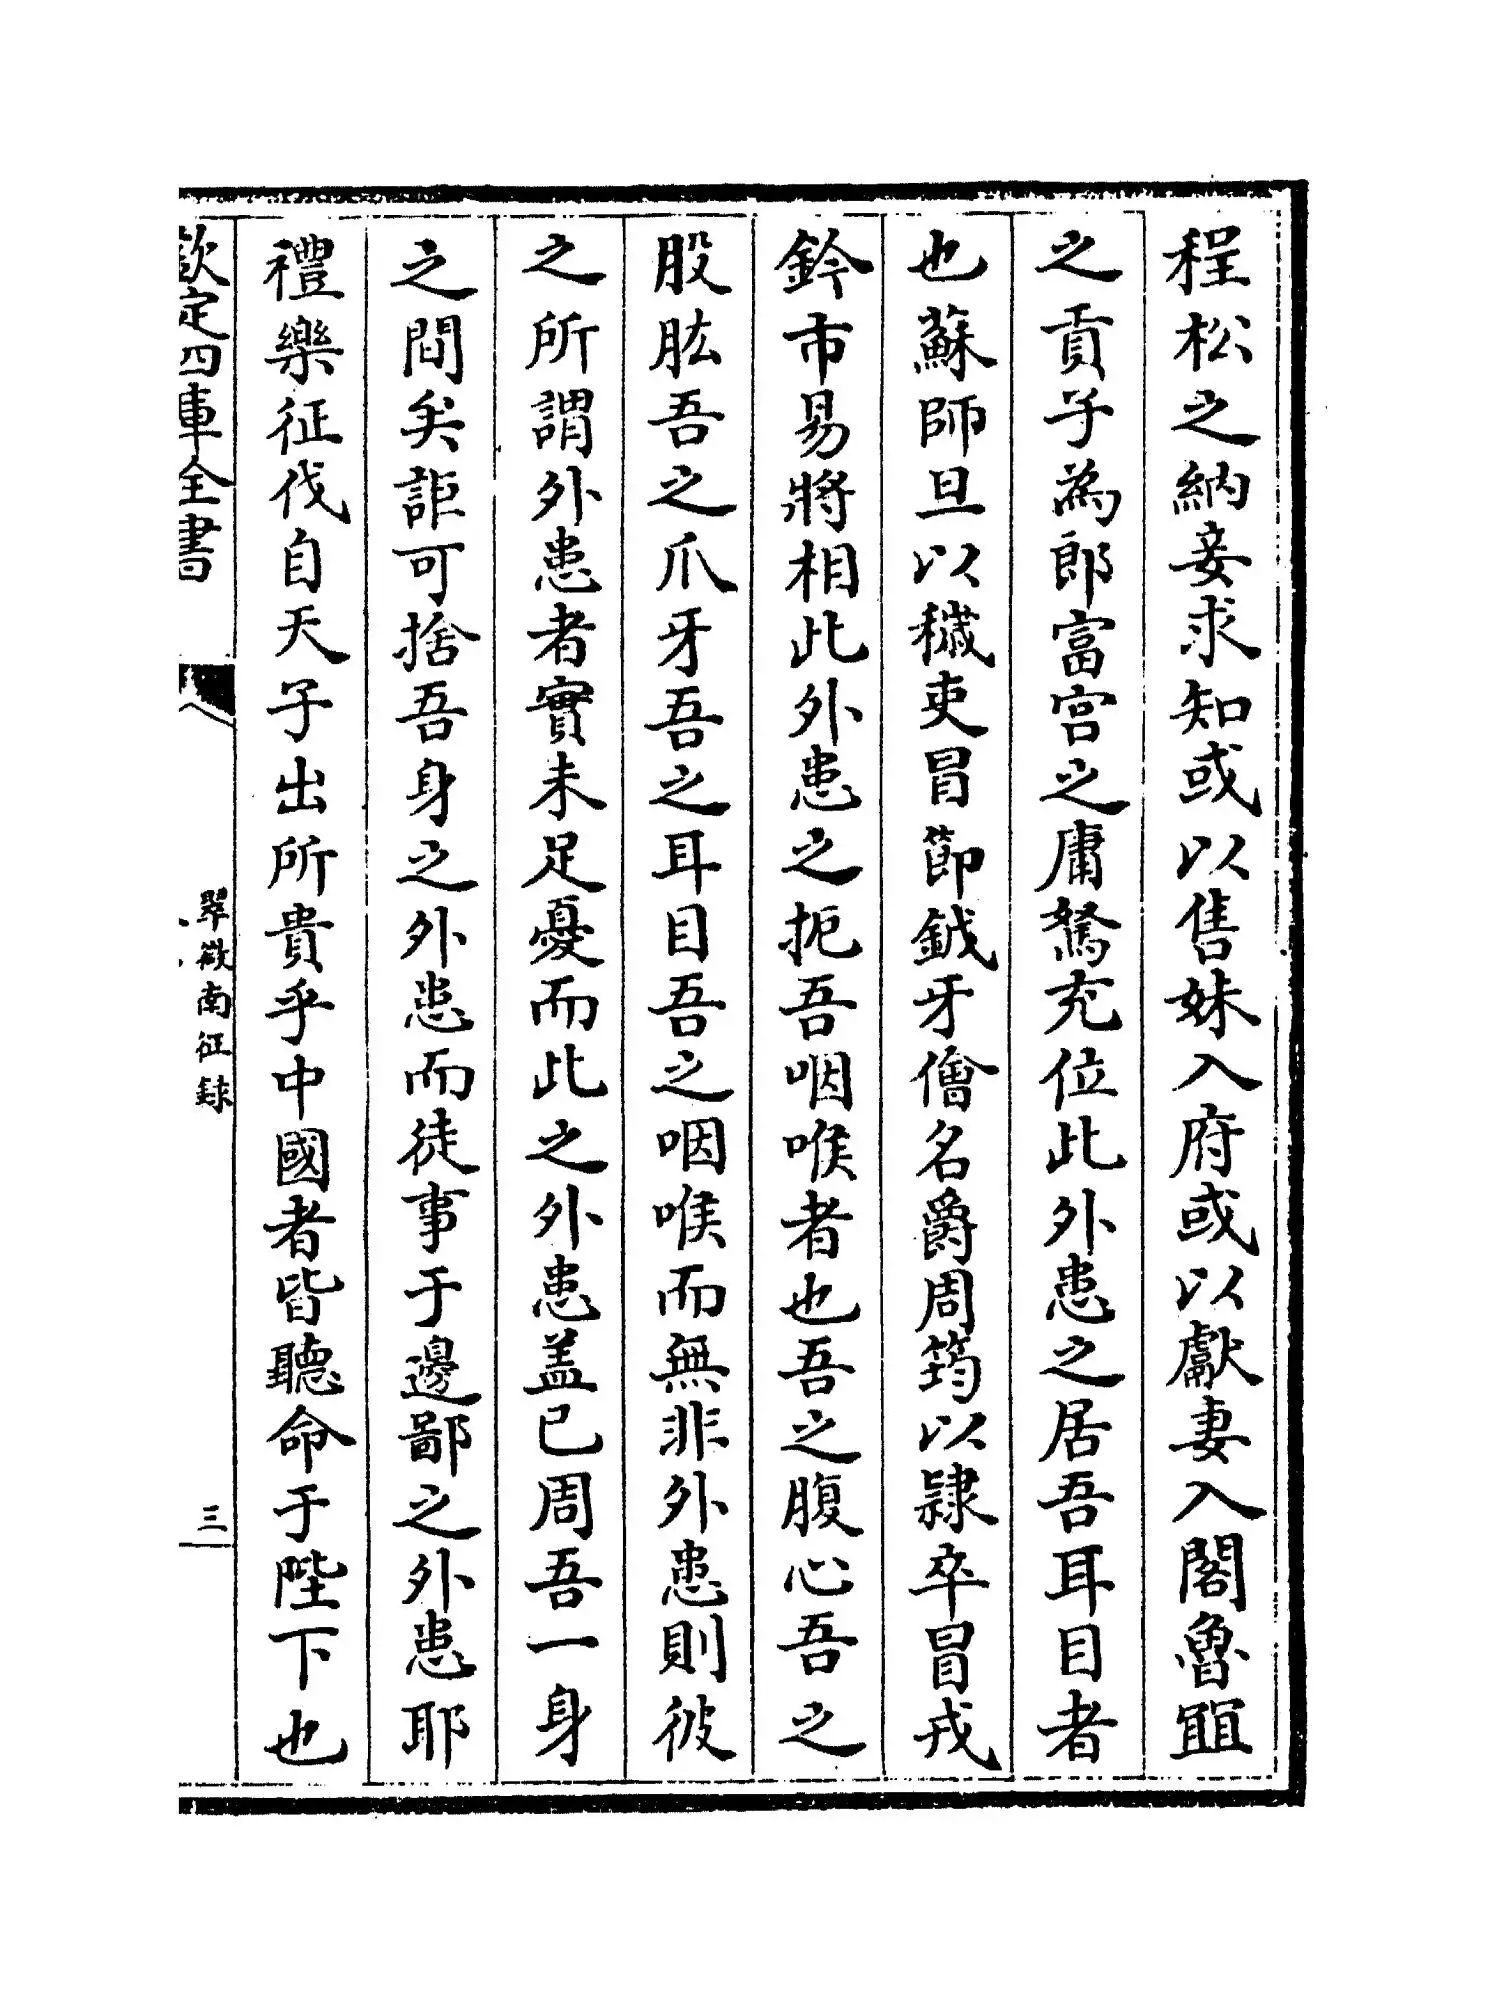 程松之納妾求知或以售妹入府或以獻妻入閣魯𧦬
之貢子為郎富宮之庸駑充位此外患之居吾耳目者
也蘇師旦以穢吏冒節鉞牙儈名爵周筠以隷卒冒戎
鈐市易將相此外患之扼吾咽喉者也吾之腹心吾之
股肱吾之爪牙吾之耳目吾之咽喉而無非外患則彼
之所謂外患者實未足憂而此之外患盖已周吾一身
之間矣詎可捨吾身之外患而徒事于邊鄙之外患耶
禮樂征伐自天子出所貴乎中國者皆聽命于陛下也
欽定四庫全書
翠微南征録
三